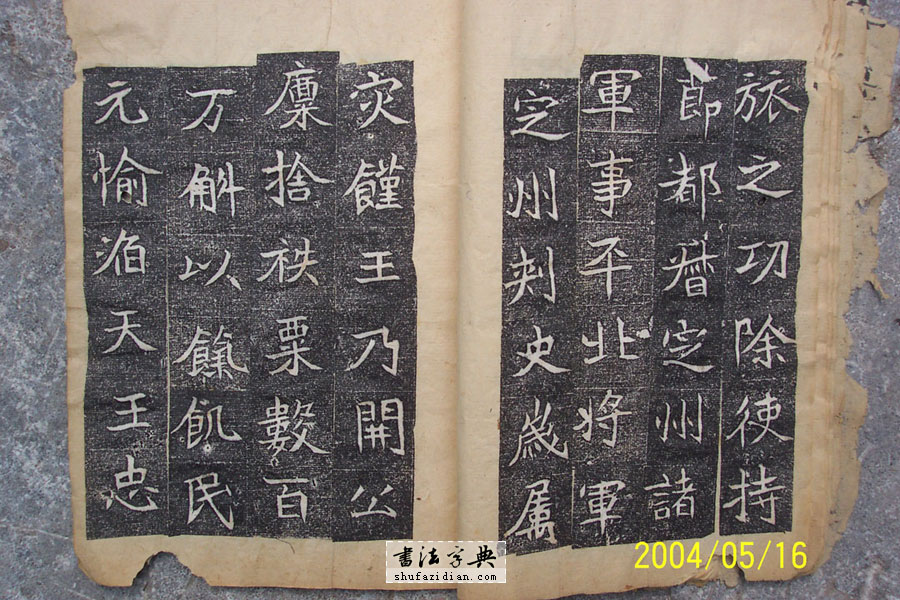 旅之功除使持
節都督定州諸
軍事平北將軍
定州刾史歳属
灾饉王乃開公
廩捨秩粟數百
万斛以餼飢民
元愉
天王忠
書法字典
shufazidian.com
2004/05/16